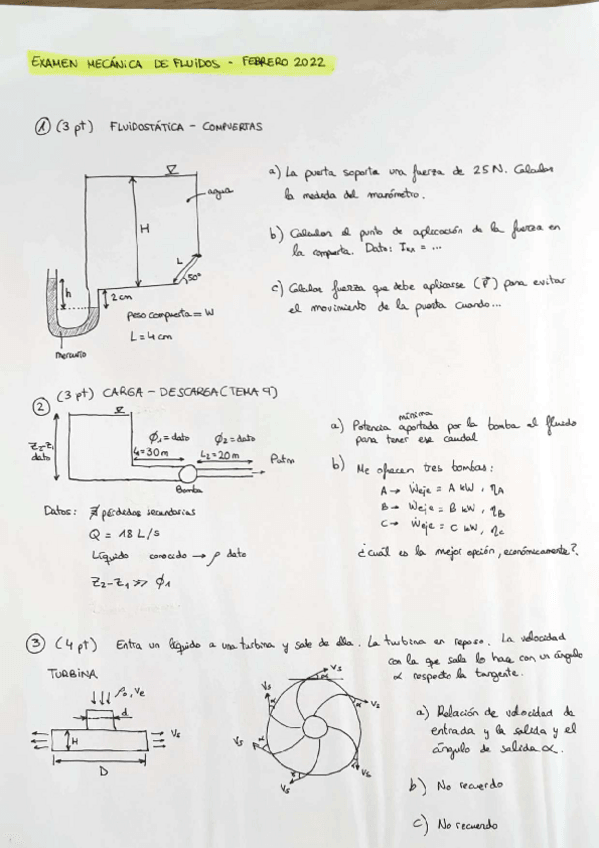 EXAMEN MECÁNICA DE FLUIDOS - FEBRERO 2022
① (3 pt) FLUIDOSTÁTICA - COMPUERTAS
agua
H
L
50°
h
2 cm
mercurio
peso compuerta = W
L = 4 cm
a) La puerta soporta una fuerza de 25 N. Calcular
la medida del manómetro.
b) Calcular el punto de aplicación de la fuerza en
la compuerta. Dato: Ixx = ...
c) Calcular fuerza que debe aplicarse (F) para evitar
el movimiento de la puerta cuando...
② (3 pt) CARGA - DESCARGA (TEMA 9)
Z2-Z1
dato
Ø1 = dato
L1 = 30 m
Ø2 = dato
L2 = 20 m
Patm
Bomba
Datos: ∄ pérdidas secundarias
Q = 18 L/s
Líquido conocido → ρ dato
Z2-Z1 >> Ø1
a) Potencia mínima aportada por la bomba al fluido
para tener ese caudal
b) Me ofrecen tres bombas:
A → Weje = A kW, ηA
B → Weje = B kW, ηB
C → Weje = C kW, ηC
¿cuál es la mejor opción, económicamente?
③ (4 pt) Entra un líquido a una turbina y sale de ella. La turbina en reposo. La velocidad
con la que sale lo hace con un ángulo
α respecto la tangente.
TURBINA
ρ0, Ve
d
Vs
H
D
Vs
α
Vs
α
Vs
α
Vs
α
Vs
α
Vs
α
a) Relación de velocidad de
entrada y la salida y el
ángulo de salida α.
b) No recuerdo
c) No recuerdo